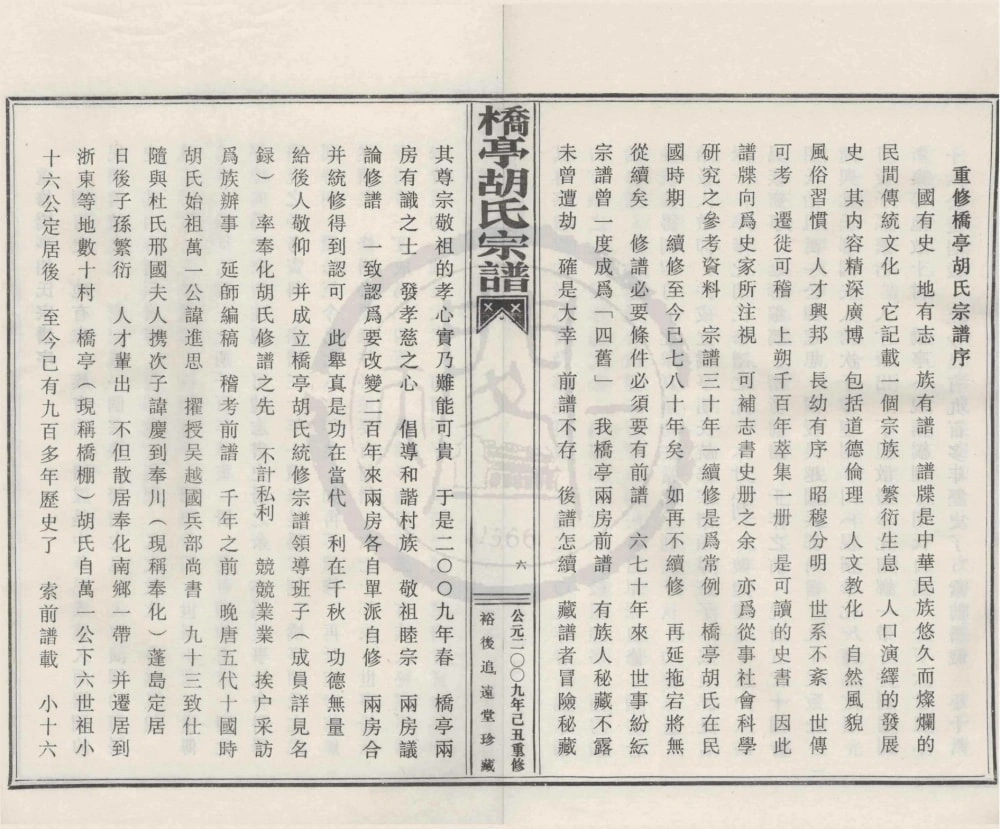 重修橋亭胡氏宗譜序
國有史 地有志 族有譜 譜牒是中華民族悠久而燦爛的
民間傳統文化 它記載一個宗族 繁衍生息 人口演繹的發展
史 其内容精深廣博 包括道德倫理 人文教化 自然風貌
風俗習慣 人才興邦 長幼有序 昭穆分明 世系不紊 世傳
可考 遷徙可稽 上朔千百年萃集一册 是可讀的史書 因此
譜牒向爲史家所注視 可補志書史册之余 亦爲從事社會科學
研究之參考資料 宗譜三十年一續修是爲常例 橋亭胡氏在民
國時期 續修至今已七八十年矣 如再不續修 再延拖宕將無
從續矣 修譜必要條件必須要有前譜 六七十年來 世事紛紜
宗譜曾一度成爲「四舊」 我橋亭兩房前譜 有族人秘藏不露
未曾遭劫 確是大幸 前譜不存 後譜怎續 藏譜者冒險秘藏
橋亭胡氏宗譜
六
公元二〇〇九年己丑重修
裕後追遠堂珍藏
其尊宗敬祖的孝心實乃難能可貴 于是二〇〇九年春 橋亭兩
房有識之士 發孝慈之心 倡導和諧村族 敬祖睦宗 兩房議
論修譜 一致認爲要改變二百年來兩房各自單派自修 兩房合
并統修得到認可 此舉真是功在當代 利在千秋 功德無量
給後人敬仰 并成立橋亭胡氏統修宗譜領導班子（成員詳見名
録） 率奉化胡氏修譜之先 不計私利 競競業業 挨户采訪
爲族辦事 延師編稿 稽考前譜 千年之前 晚唐五代十國時
胡氏始祖萬一公諱進思 擢授吴越國兵部尚書 九十三致仕
隨與杜氏邢國夫人携次子諱慶到奉川（現稱奉化）蓬島定居
日後子孫繁衍 人才輩出 不但散居奉化南鄉一帶 并遷居到
浙東等地數十村 橋亭（現稱橋棚）胡氏自萬一公下六世祖小
十六公定居後 至今已有九百多年歷史了 索前譜載 小十六
1566